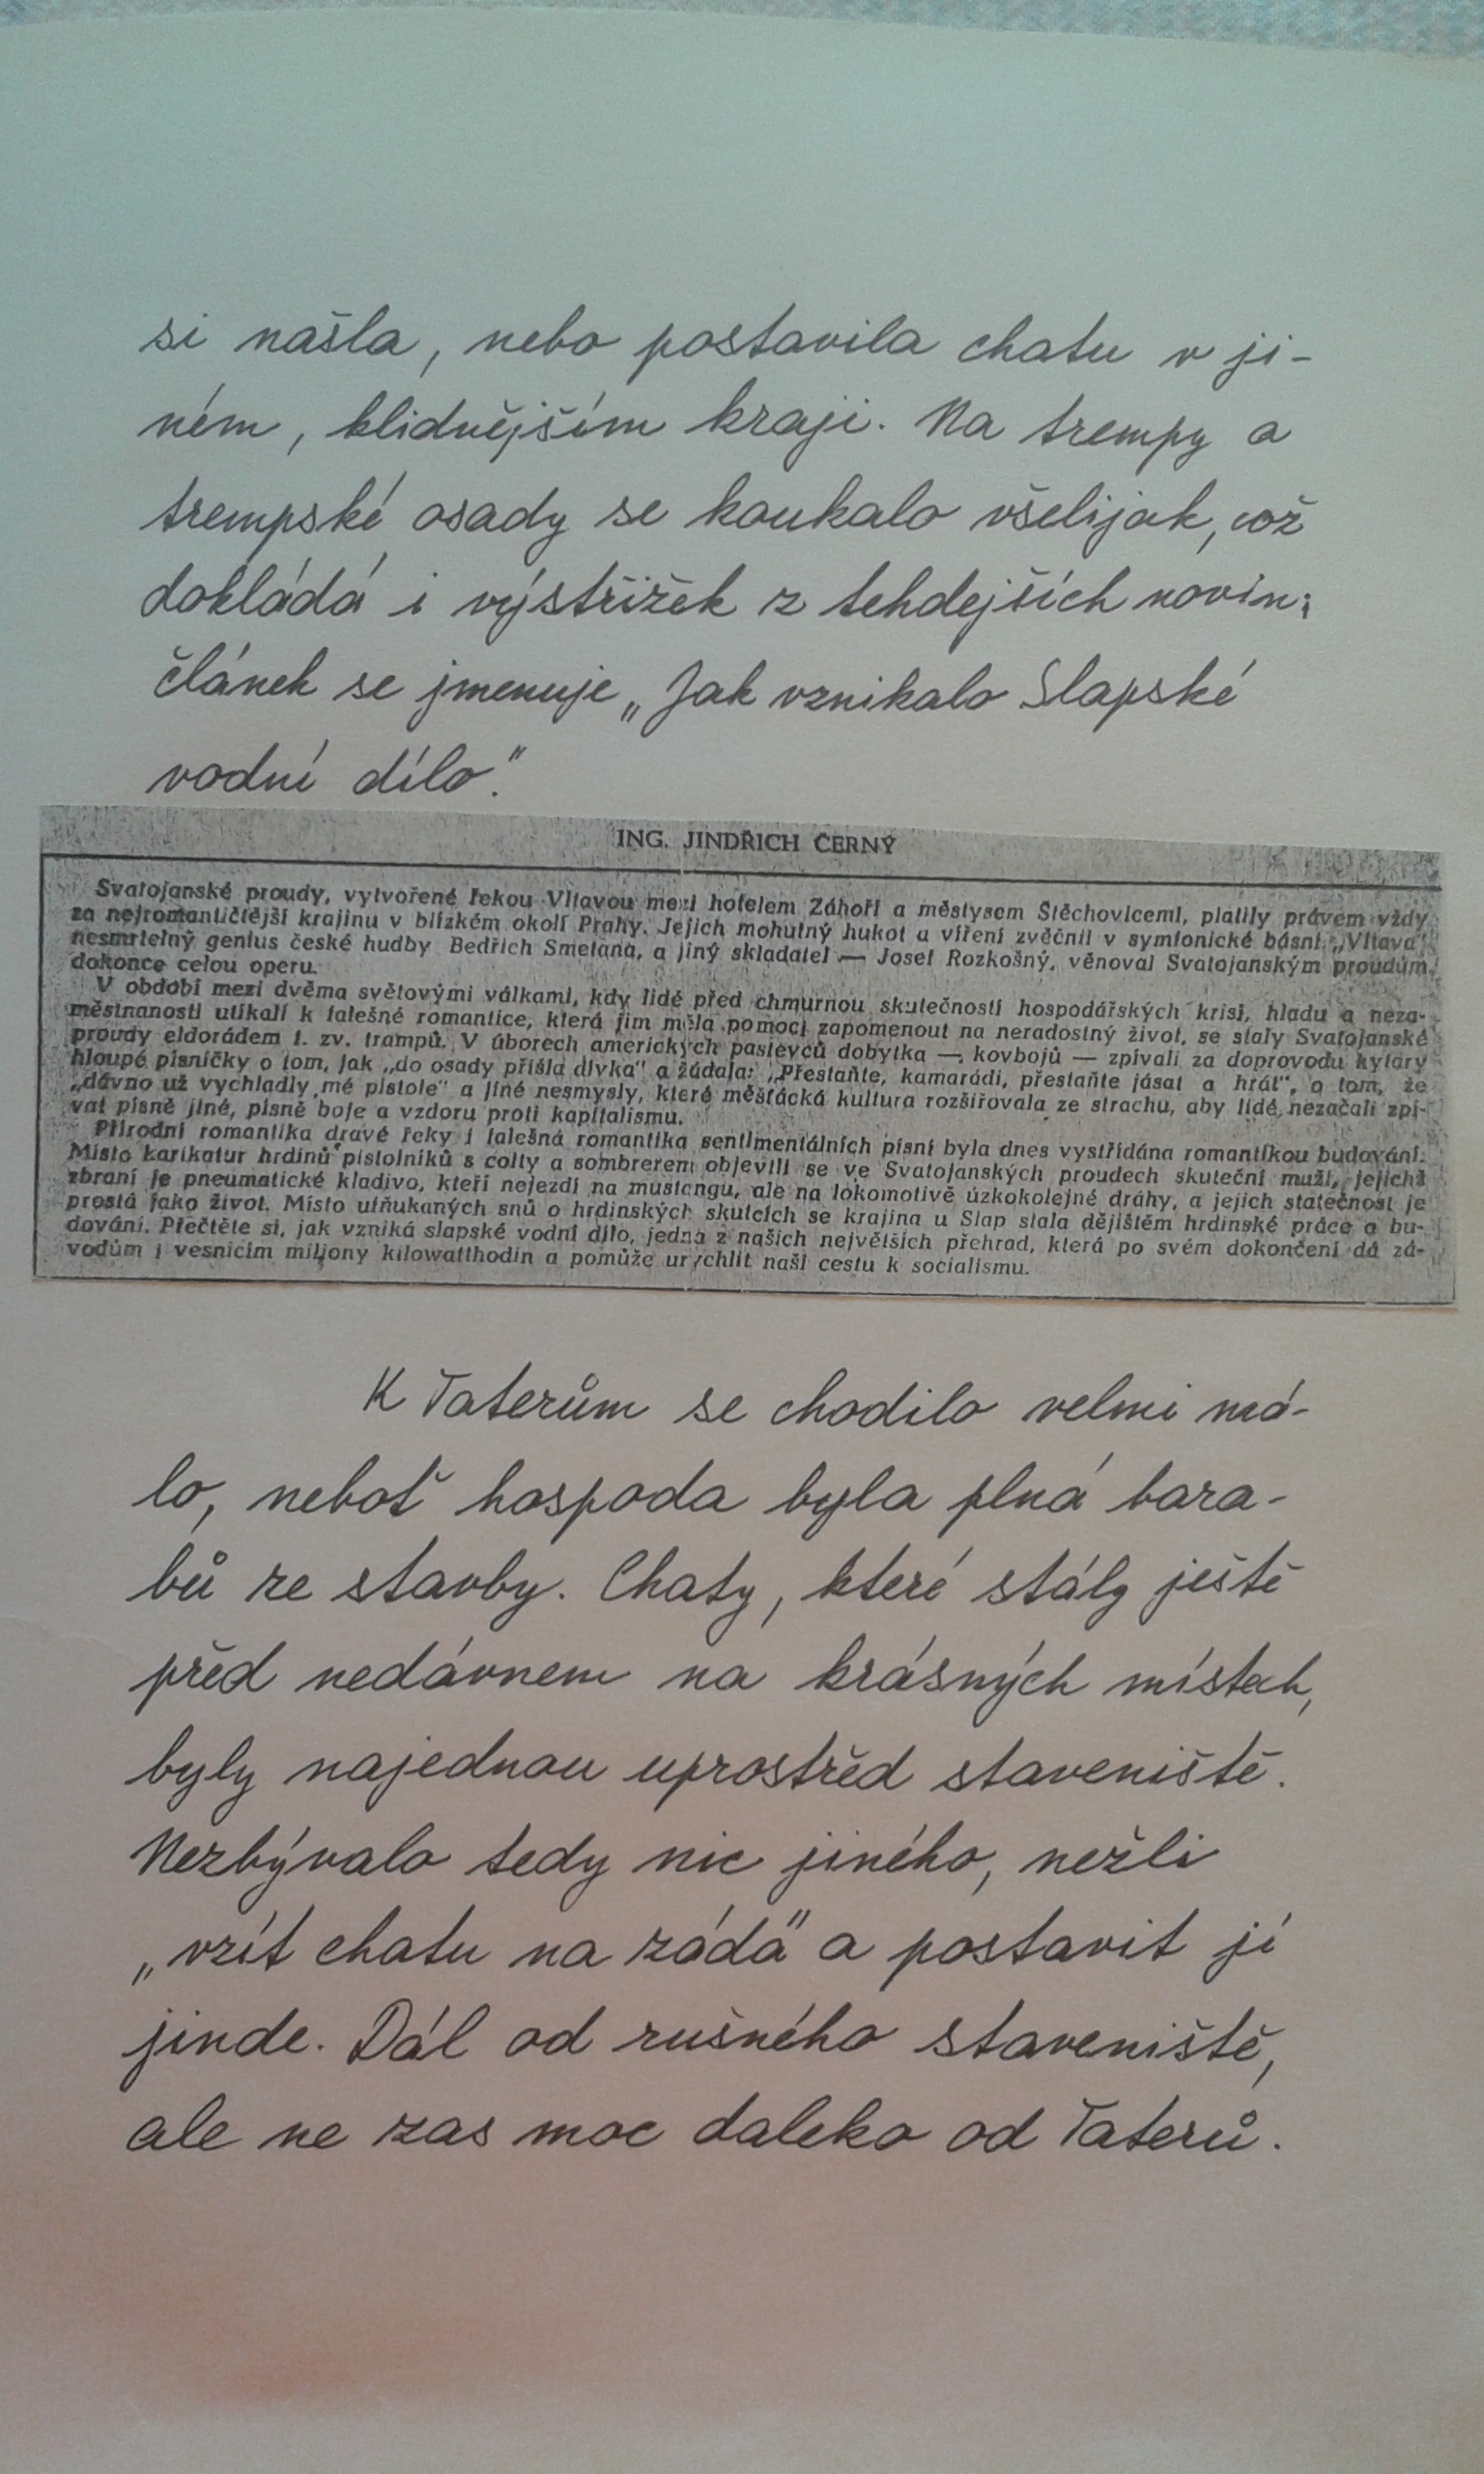 si našla, nebo postavila chatu v ji-
ném, klidnějším kraji. Na trempy a
trempské osady se koukalo všelijak, což
dokládá i výstřižek z tehdejších novin;
článek se jmenuje „Jak vznikalo Slapské
vodní dílo."
ING. JINDŘICH ČERNÝ
Svatojanské proudy, vytvořené řekou Vltavou mezi hotelem Záhoří a městysem Štěchovicemi, platily právem vždy
za nejromantičtější krajinu v blízkém okolí Prahy. Jejich mohutný hukot a víření zvěčnil v symfonické básni „Vltava"
nesmrtelný genius české hudby Bedřich Smetana, a jiný skladatel — Josef Rozkošný, věnoval Svatojanským proudům
dokonce celou operu.
V období mezi dvěma světovými válkami, kdy lidé před chmurnou skutečností hospodářských krisí, hladu a neza-
městnanosti utíkali k falešné romantice, která jim měla pomoci zapomenout na neradostný život, se staly Svatojanské
proudy eldorádem t. zv. trampů. V úborech amerických pastevců dobytka — kovbojů — zpívali za doprovodu kytary
hloupé písničky o tom, jak „do osady přišla dívka" a žádala: „Přestaňte, kamarádi, přestaňte jásat a hrát", o tom, že
„dávno už vychladly mé pistole" a jiné nesmysly, které měšťácká kultura rozšiřovala ze strachu, aby lidé nezačali zpí-
vat písně jiné, písně boje a vzdoru proti kapitalismu.
Přírodní romantika dravé řeky i falešná romantika sentimentálních písní byla dnes vystřídána romantikou budování.
Místo karikatur hrdinů pistolníků s colty a sombrerem objevili se ve Svatojanských proudech skuteční muži, jejichž
zbraní je pneumatické kladivo, kteří nejezdí na mustangu, ale na lokomotivě úzkokolejné dráhy, a jejich statečnost je
prostá jako život. Místo ufňukaných snů o hrdinských skutcích se krajina u Slap stala dějištěm hrdinské práce a bu-
dování. Přečtěte si, jak vzniká slapské vodní dílo, jedna z našich největších přehrad, která po svém dokončení dá zá-
vodům i vesnicím miliony kilowatthodin a pomůže urychlit naši cestu k socialismu.
K Taterům se chodilo velmi má-
lo, neboť hospoda byla plná bara-
bů ze stavby. Chaty, které stály ještě
před nedávnem na krásných místech,
byly najednou uprostřed staveniště.
Nezbývalo tedy nic jiného, nežli
„vzít chatu na záda" a postavit jí
jinde. Dál od rušného staveniště,
ale ne zas moc daleko od Taterů.